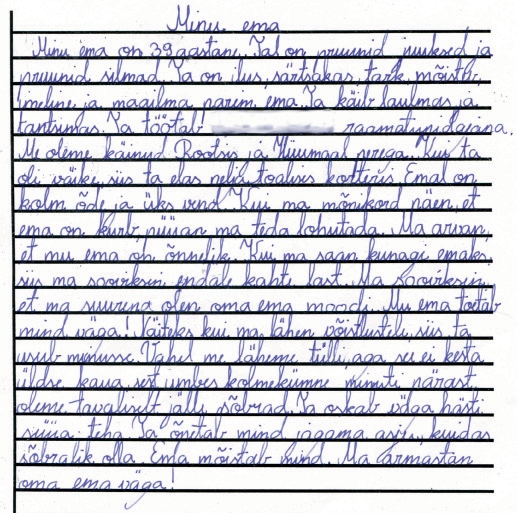 Minu ema
Minu ema on 39 aastane. Tal on pruunid juuksed ja
pruunid silmad. Ta on ilus, särtsakas, tark, mõistev,
imeline ja maailma parim ema. Ta käib laulmas ja
tantsimas. Ta töötab raamatupidajana.
Me oleme käinud Rootsis ja Hiiumaal perega. Kui ta
oli väike, siis ta elas neljatoalises korteris. Emal on
kolm õde ja üks vend. Kui ma mõnikord näen, et
ema on kurb, püüan ma teda lohutada. Ma arvan,
et mu ema on õnnelik. Kui ma saan kunagi emaks,
siis ma sooviksin endale kahte last. Ma sooviksin,
et ma suurena olen oma ema moodi. Mu ema toetab
mind väga! Näiteks kui ma lähen võistlustele, siis ta
usub minusse. Vahel me läheme tülli, aga see ei kesta
üldse kaua, sest umbes kolmekümne minuti pärast
oleme tavaliselt jälle sõbrad. Ta oskab väga hästi
süüa teha. Ta õpetab mind jagama asju, kuidas
sõbralik olla. Ema mõistab mind. Ma armastan
oma ema väga!